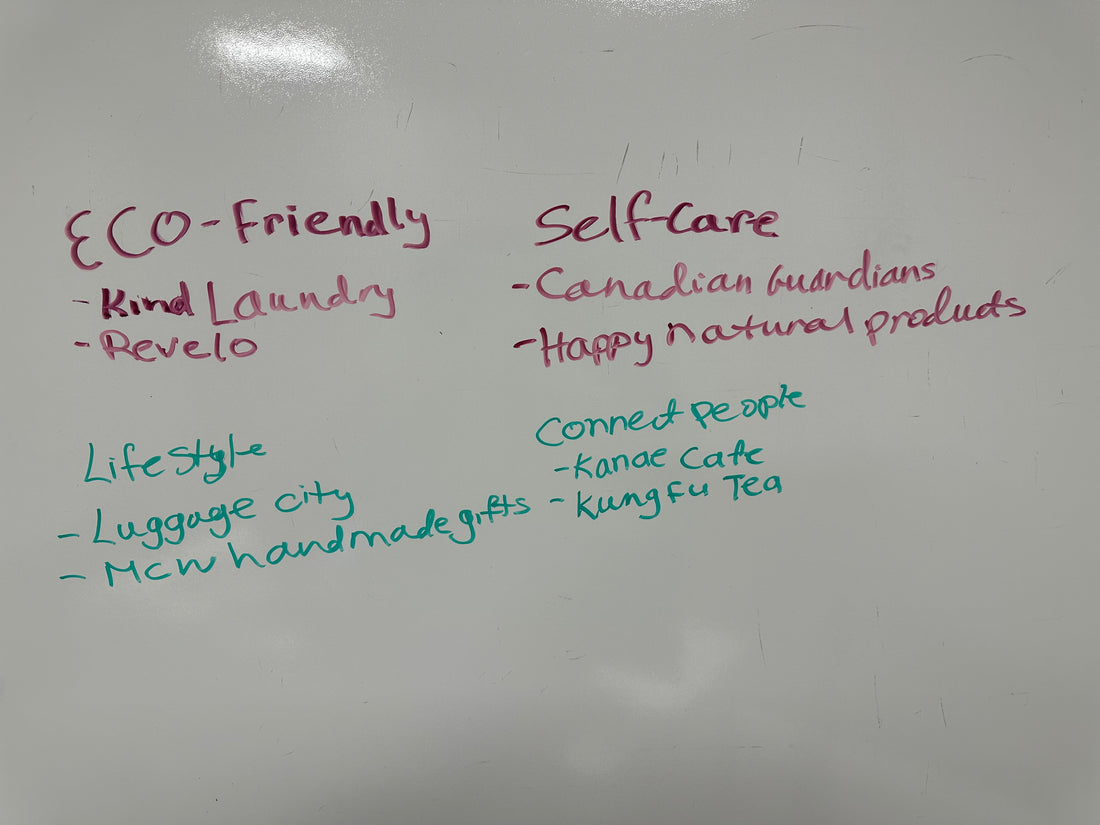 ECO-Friendly
- Kind Laundry
- Revelo
Self-Care
- Canadian Guardians
- Happy natural products
Lifestyle
- Luggage city
- Mcw handmade gifts
Connect people
- Kanae Cafe
- Kung Fu Tea